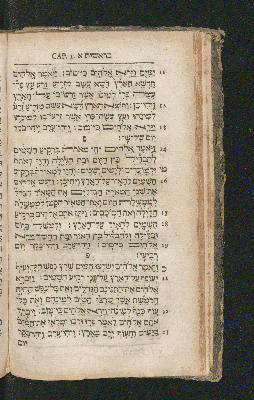 CAP. 1. בראשית א
ימים וירא אלהים כי טוב: ויאמר אלהים
תדשא הארץ דשא עשב מזריע זרע עץ פרי
עשה פרי למינו אשר זרעו בו על הארץ
ויהי כן: ותוצא הארץ דשא עשב מזריע זרע
למינהו ועץ עשה פרי אשר זרעו בו למינהו
וירא אלהים כי טוב: ויהי ערב ויהי בקר
יום שלישי: פ
ויאמר אלהים יהי מארת ברקיע השמים
להבדיל בין היום ובין הלילה והיו לאתת
ולמועדים ולימים ושנים: והיו למאורת ברקיע
השמים להאיר על הארץ ויהי כן: ויעש אלהים
את שני המארת הגדלים את המאור הגדל
לממשלת היום ואת המאור הקטן לממשלת
הלילה ואת הכוכבים: ויתן אתם אלהים ברקיע
השמים להאיר על הארץ: ולמשל ביום
ובלילה ולהבדיל בין האור ובין החשך וירא
אלהים כי טוב: ויהי ערב ויהי בקר יום
רביעי: פ
ויאמר אלהים ישרצו המים שרץ נפש חיה ועוף
יעופף על הארץ על פני רקיע השמים: ויברא
אלהים את התנינם הגדלים ואת כל נפש החיה
הרמשת אשר שרצו המים למינהם ואת כל
עוף כנף למינהו וירא אלהים כי טוב: ויברך
אתם אלהים לאמר פרו ורבו ומלאו את המים
בימים והעוף ירב בארץ: ויהי ערב ויהי בקר
יום